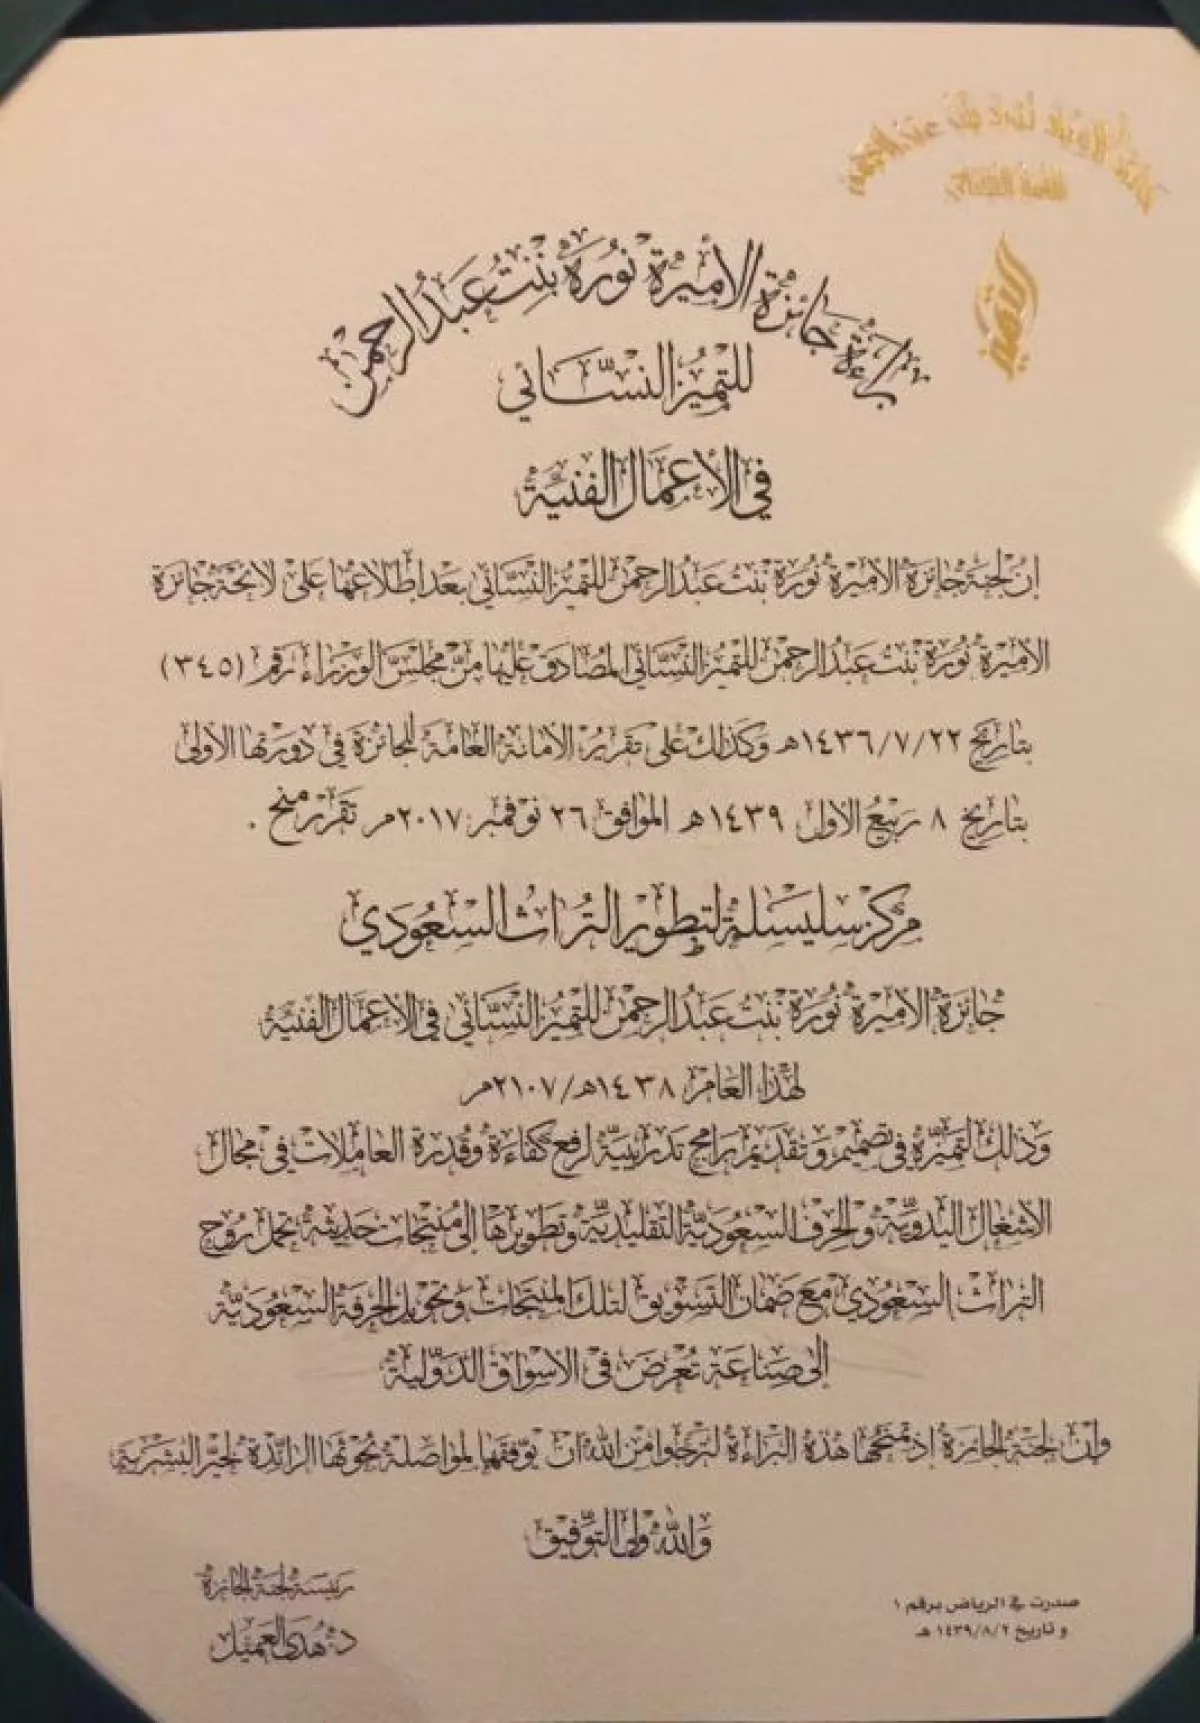 جائزة الأميرة نورة بنت عبدالرحمن
للتميز النسائي
براءة جائزة الاميرة نورة بنت عبدالرحمن
للتميز النسائي
في الاعمال الفنية
إن لجنة جائزة الاميرة نورة بنت عبدالرحمن للتميز النسائي بعد اطلاعها على لائحة جائزة
الاميرة نورة بنت عبدالرحمن للتميز النسائي المصادق عليها من مجلس الوزراء رقم (٣٤٥)
بتاريخ ١٤٣٦/٧/٢٢هـ وكذلك على تقرير الامانة العامة للجائزة في دورتها الاولى
بتاريخ ٨ ربيع الاول ١٤٣٩هـ الموافق ٢٦ نوفمبر ٢٠١٧م تقرر منح .
مركز سليسلة لتطوير التراث السعودي
جائزة الاميرة نورة بنت عبدالرحمن للتميز النسائي في الاعمال الفنية
لهذا العام ١٤٣٨هـ/٢١٠٧م
وذلك لتميزه في تصميم وتقديم برامج تدريبية لرفع كفاءة وقدرة العاملات في مجال
الاشغال اليدوية والحرف السعودية التقليدية وتطويرها إلى منتجات حديثة تحمل روح
التراث السعودي مع ضمان التسويق لتلك المنتجات وتحويل الحرفة السعودية
إلى صناعة تعرض في الاسواق الدولية
وإن لجنة الجائزة إذ تمنحها هذه البراءة لترجوا من الله ان يوفقها لمواصلة بحوثها الرائدة لخير البشرية
والله ولي التوفيق
رئيسة لجنة الجائزة
د. هدى العميل
صدرت في الرياض برقم ١
و تاريخ ١٤٣٩/٨/٢ هـ